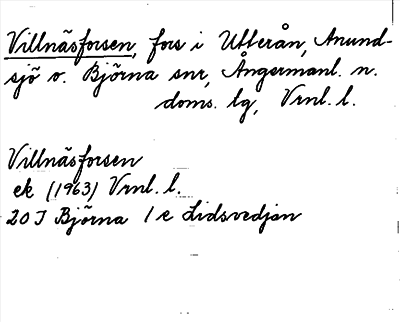 Villnäsforsen, fors i Utterån, Anund-
sjö o. Björna snr, Ångermanl. n.
doms. lg, Vrnl. l.
Villnäsforsen
ek (1963) Vrnl. l.
20 J Björna 1 e Lidsvedjan